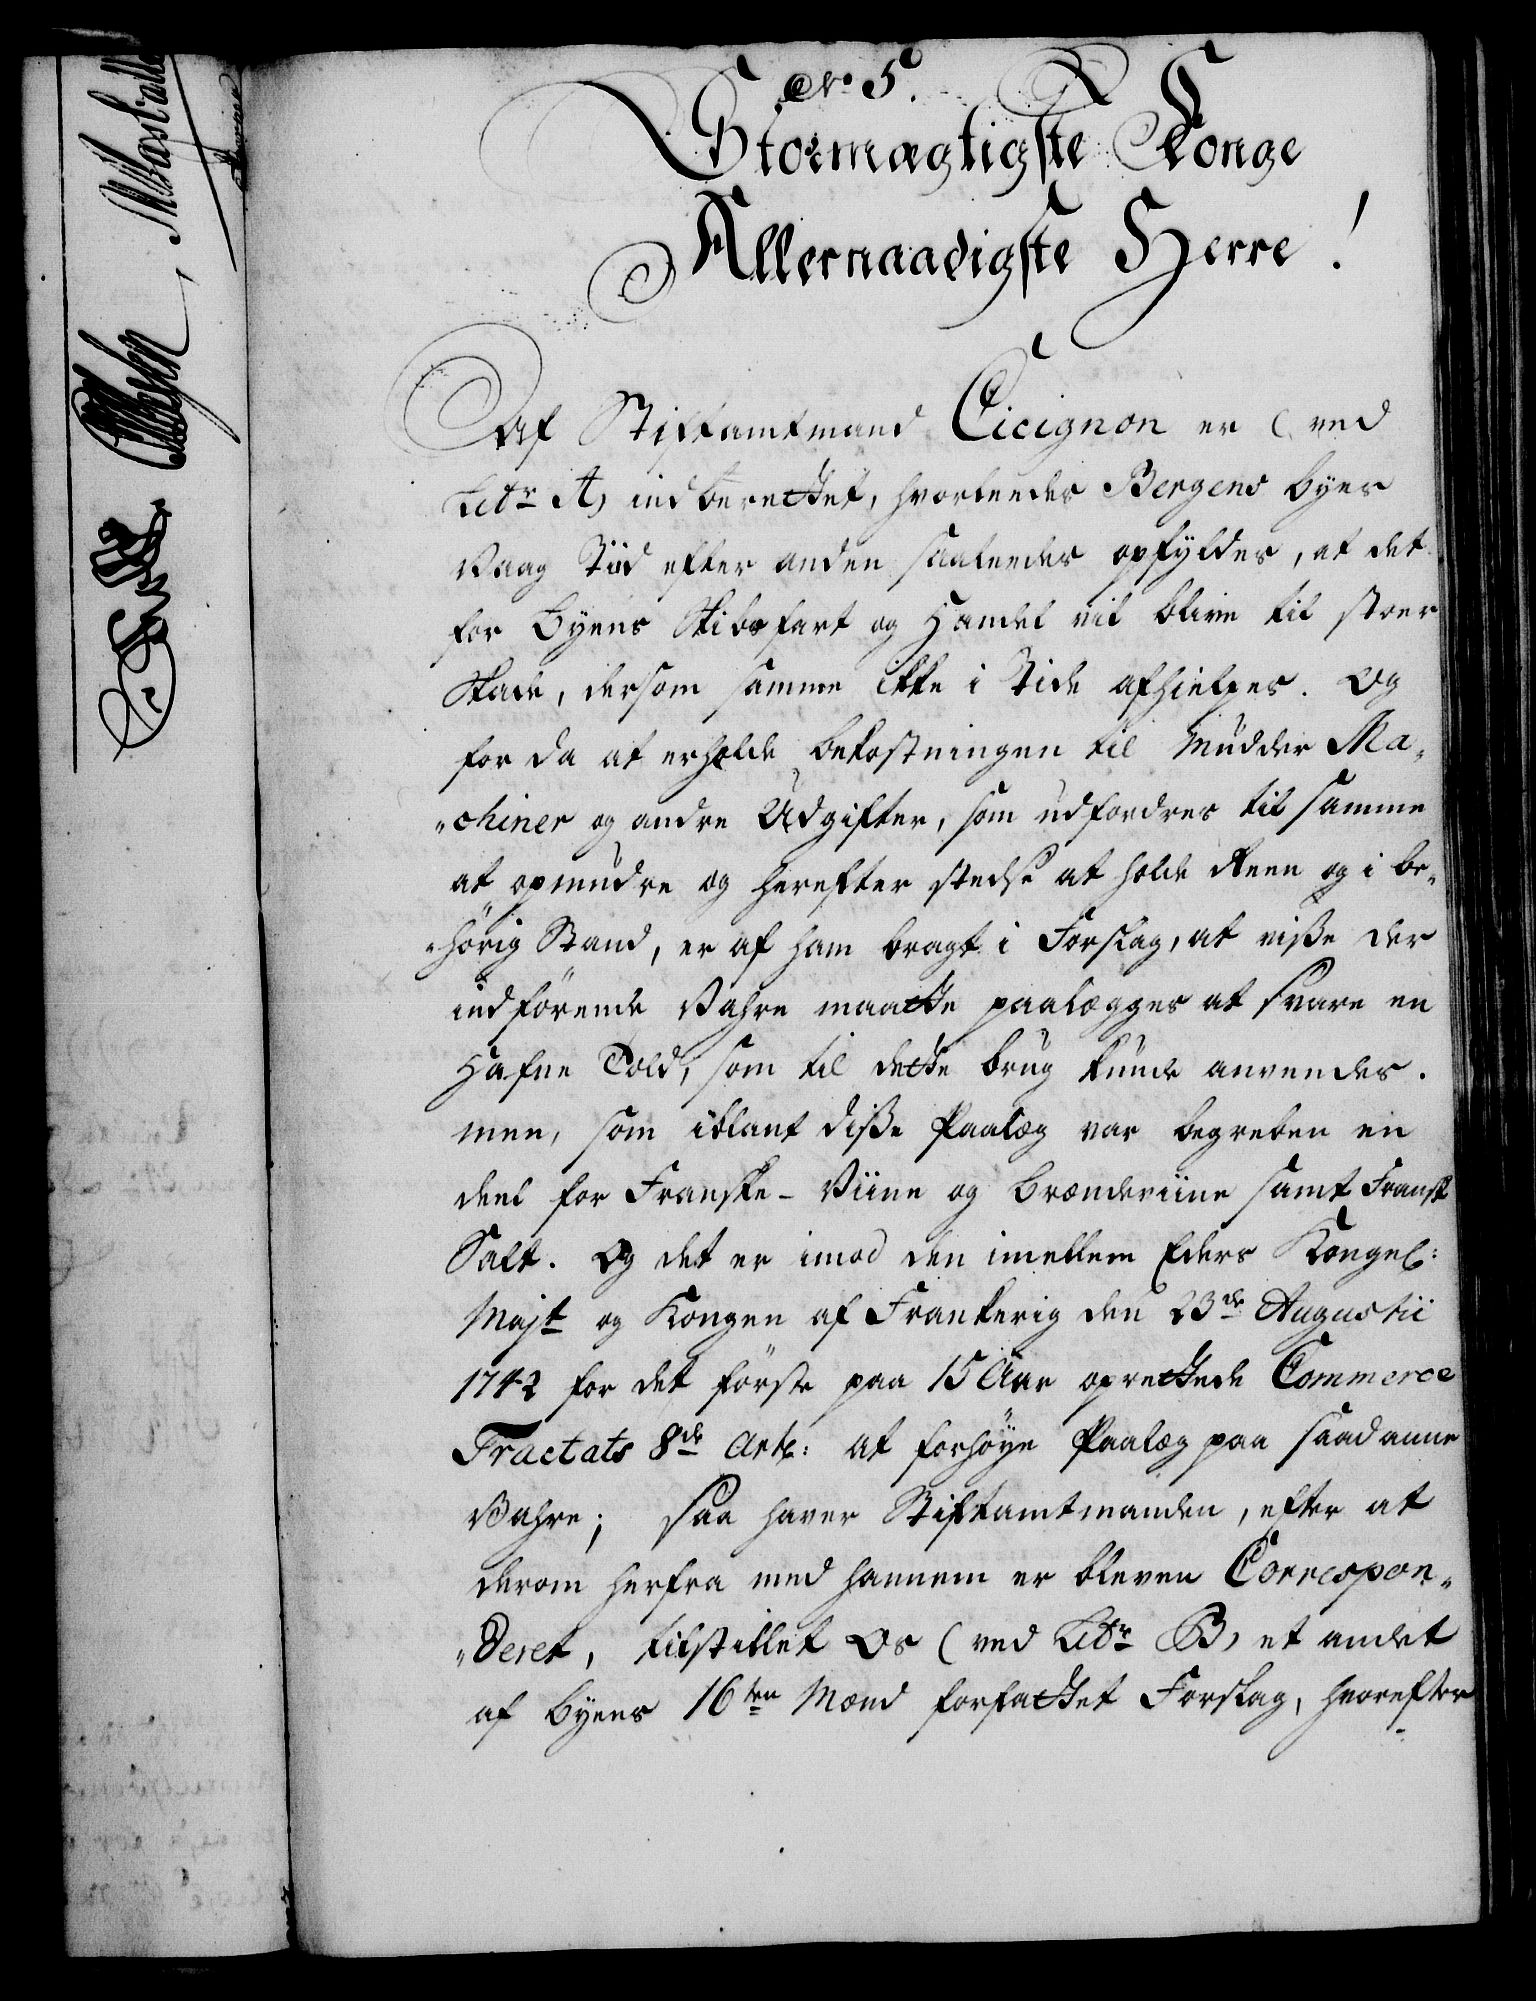 No 5.
Stormægtigste Konge
Allernaadigste Herre!
Af Stiftamtmand Cicignon er (ved
Litr A) indberettet, hvorleedes Bergens byes
Vaag Tiid efter anden saaleedes opfyldes, at det
for Byens Skibsfart og Handel vil blive til stoer
Skade, dersom samme ikke i Tide afhielpes. Og
for da at erholde bekostningen til Mudder Ma-
„chiner og andre Udgifter, som udfordres til samme
at opmudre og herefter stedse at holde Reen og i be-
„hörig Stand, er af ham bragt i Forslag, at visse der
indförende Vahre maatte paalægges at svare en
Hafne Told, som til dette brug kunde anvendes.
men, som iblant disse Paalæg var begreben en
deel for Franske- Viine og brændeviine samt Fransk
Salt. Og det er imod den imellem Eders Kongel:
Majt og Kongen af Frankerig den 23de Augustii
1742 for det förste paa 15 Aar oprettede Commerce
Tractats 8de Artl: at forhöye Paalæg paa saadanne
Vahre; saa haver Stiftamtmanden, efter at
derom herfra med hannem er bleven Correspon-
„deret, tilstillet Os (ved Litr B) et andet
af byens 16ten Mænd forfattet Forslag, hvorefter